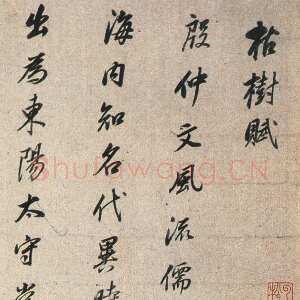 枯樹賦
殷仲文風流儒
海内知名代異時
出為東陽太守常
Shufawang.CN